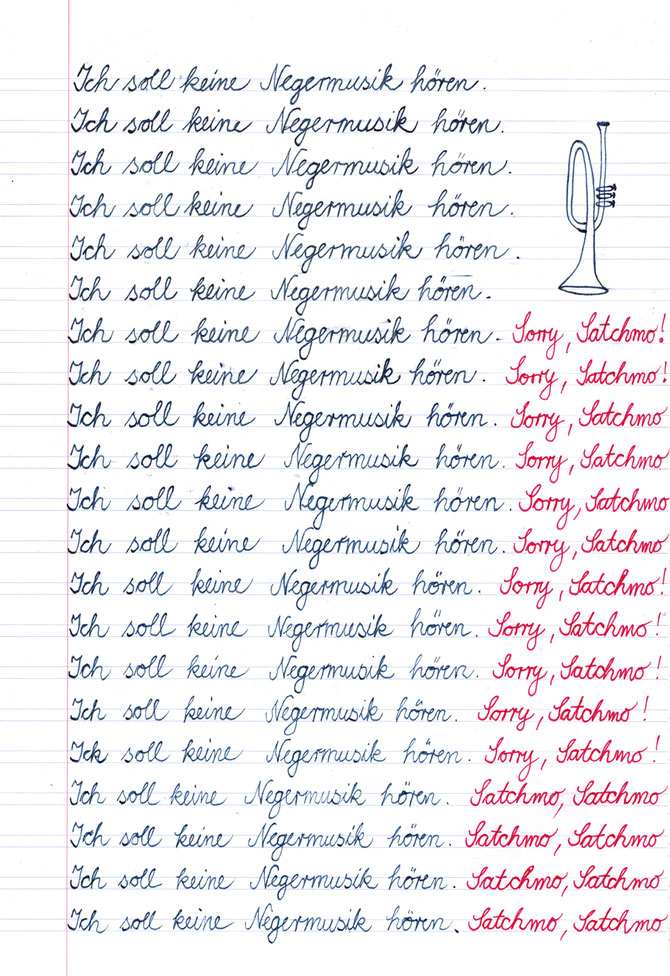 Ich soll keine Negermusik hören.
Ich soll keine Negermusik hören.
Ich soll keine Negermusik hören.
Ich soll keine Negermusik hören.
Ich soll keine Negermusik hören.
Ich soll keine Negermusik hören.
Ich soll keine Negermusik hören. Sorry, Satchmo!
Ich soll keine Negermusik hören. Sorry, Satchmo!
Ich soll keine Negermusik hören. Sorry, Satchmo
Ich soll keine Negermusik hören. Sorry, Satchmo
Ich soll keine Negermusik hören. Sorry, Satchmo
Ich soll keine Negermusik hören. Sorry, Satchmo
Ich soll keine Negermusik hören. Sorry, Satchmo!
Ich soll keine Negermusik hören. Sorry, Satchmo!
Ich soll keine Negermusik hören. Sorry, Satchmo!
Ich soll keine Negermusik hören. Sorry, Satchmo!
Ick soll keine Negermusik hören. Sorry, Satchmo!
Ich soll keine Negermusik hören. Satchmo, Satchmo
Ich soll keine Negermusik hören. Satchmo, Satchmo
Ich soll keine Negermusik hören. Satchmo, Satchmo
Ich soll keine Negermusik hören. Satchmo, Satchmo